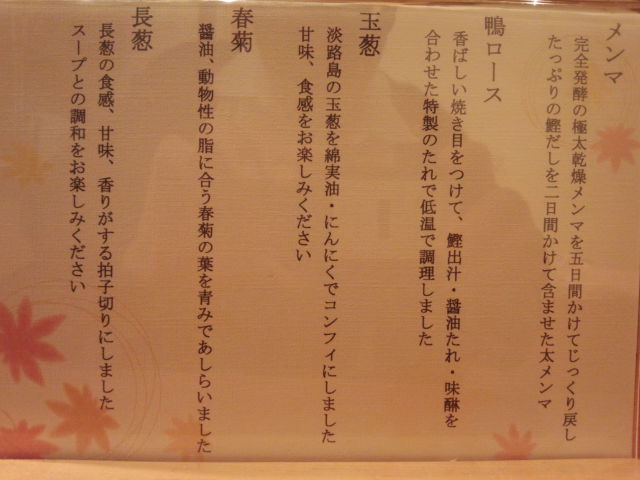 メンマ
完全発酵の極太乾燥メンマを五日間かけてじっくり戻し
たっぷりの鰹だしを二日間かけて含ませた太メンマ
鴨ロース
香ばしい焼き目をつけて、鰹出汁・醤油たれ・味醂を
合わせた特製のたれで低温で調理しました
玉葱
淡路島の玉葱を綿実油・にんにくでコンフィにしました
甘味、食感をお楽しみください
春菊
醤油、動物性の脂に合う春菊の葉を青みであしらいました
長葱
長葱の食感、甘味、香りがする拍子切りにしました
スープとの調和をお楽しみください